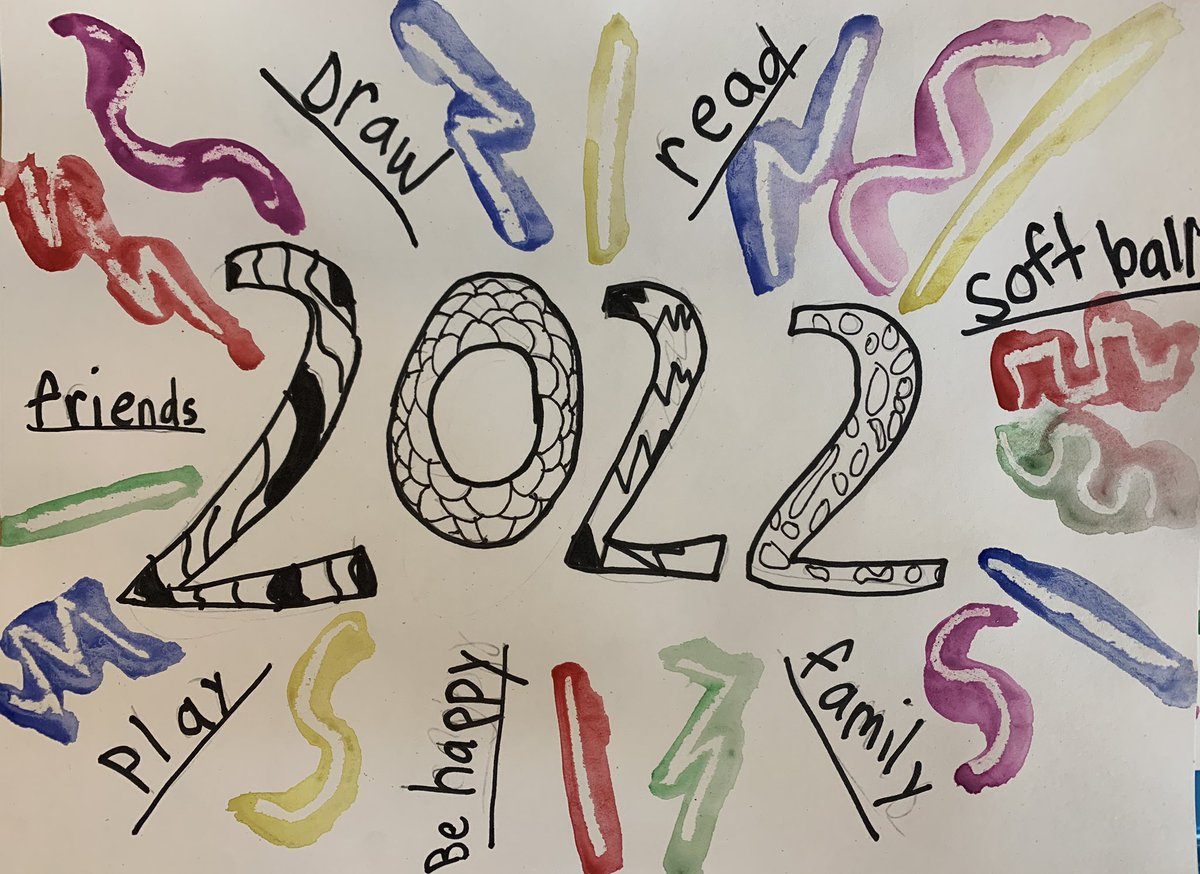 Draw
read
Soft ball
friends
2022
Play
Be happy
family